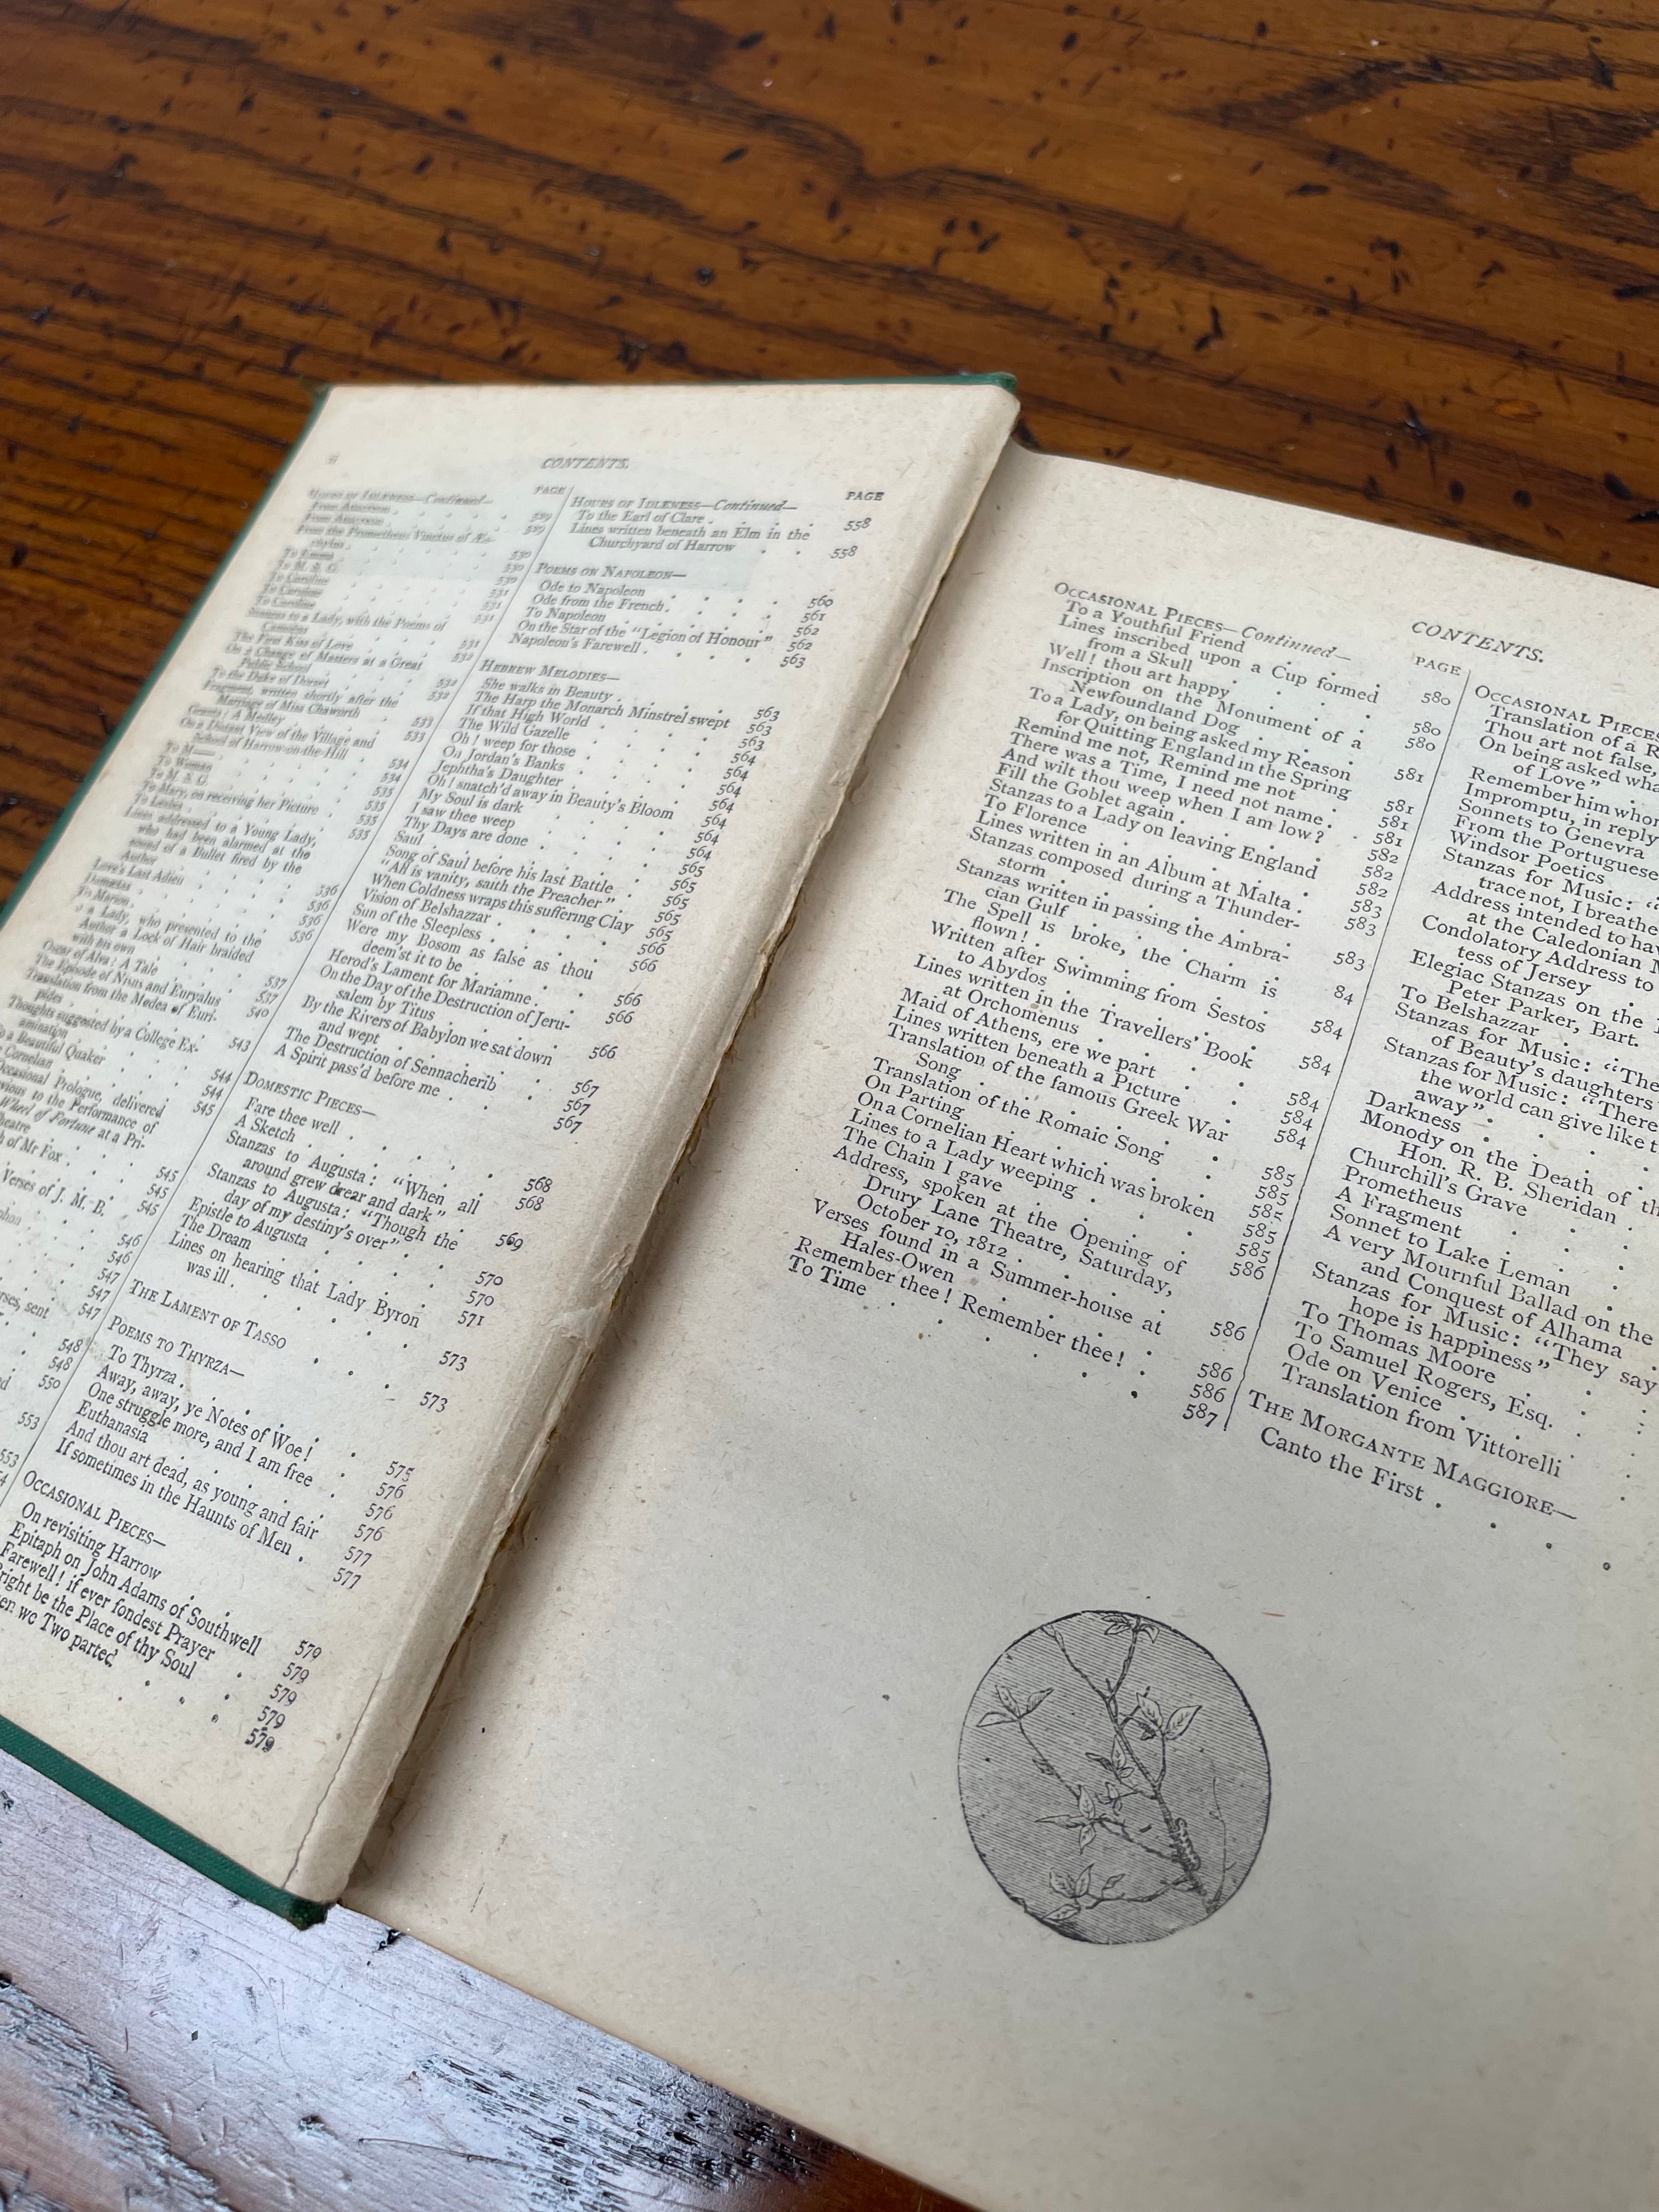 CONTENTS.
HOURS OF IDLENESS—Continued—
PAGE
From Anacreon . 529
From Anacreon . 529
From the Prometheus Vinctus of Æs-
chylus . 530
To Emma 530
To M. S. G. 530
To Caroline 531
To Caroline 531
To Caroline 531
Stanzas to a Lady, with the Poems of
Camoëns 531
The First Kiss of Love 532
On a Change of Masters at a Great
Public School 532
To the Duke of Dorset 532
Fragment, written shortly after the
Marriage of Miss Chaworth 533
Granta: A Medley 533
On a Distant View of the Village and
School of Harrow-on-the-Hill 534
To M—— 534
To Woman 535
To M. S. G. 535
To Mary, on receiving her Picture 535
To Lesbia
Lines addressed to a Young Lady,
who had been alarmed at the
sound of a Bullet fired by the
Author 536
Love's Last Adieu 536
Damætas 536
To Marion 536
a Lady, who presented to the
Author a Lock of Hair braided
with his own 537
Oscar of Alva: A Tale 537
The Episode of Nisus and Euryalus 540
Translation from the Medea of Euri-
pides 543
Thoughts suggested by a College Ex-
amination 544
a Beautiful Quaker 544
Cornelian 545
Occasional Prologue, delivered
the Performance of
Wheel of Fortune at a Pri-
545
of Mr Fox 545
Verses of J. M. B. 545
546
546
547
sent 547
548
548
550
553
553
HOURS OF IDLENESS—Continued— PAGE
To the Earl of Clare . 558
Lines written beneath an Elm in the
Churchyard of Harrow 558
POEMS ON NAPOLEON—
Ode to Napoleon 560
Ode from the French . 561
To Napoleon 562
On the Star of the "Legion of Honour" 562
Napoleon's Farewell . 563
HEBREW MELODIES—
She walks in Beauty . 563
The Harp the Monarch Minstrel swept 563
If that High World 563
The Wild Gazelle 564
Oh! weep for those 564
On Jordan's Banks 564
Jephtha's Daughter 564
Oh! snatch'd away in Beauty's Bloom 564
My Soul is dark 564
I saw thee weep 565
Thy Days are done 565
Saul 565
Song of Saul before his last Battle 565
"All is vanity, saith the Preacher" 566
When Coldness wraps this suffering Clay 566
Vision of Belshazzar
Sun of the Sleepless
Were my Bosom as false as thou
deem'st it to be 566
Herod's Lament for Mariamne . 566
On the Day of the Destruction of Jeru-
salem by Titus 566
By the Rivers of Babylon we sat down
and wept 567
The Destruction of Sennacherib 567
A Spirit pass'd before me 567
DOMESTIC PIECES—
Fare thee well 568
A Sketch 568
Stanzas to Augusta: "When all
around grew drear and dark" 569
Stanzas to Augusta: "Though the
day of my destiny's over" 570
Epistle to Augusta 570
The Dream 571
Lines on hearing that Lady Byron
was ill . 573
THE LAMENT OF TASSO 573
POEMS TO THYRZA—
To Thyrza . 575
Away, away, ye Notes of Woe! 576
One struggle more, and I am free 576
Euthanasia 576
And thou art dead, as young and fair 577
If sometimes in the Haunts of Men . 577
OCCASIONAL PIECES—
On revisiting Harrow 579
Epitaph on John Adams of Southwell 579
Farewell! if ever fondest Prayer 579
right be the Place of thy Soul 579
en we Two parted 579
CONTENTS.
OCCASIONAL PIECES—Continued— PAGE
To a Youthful Friend 580
Lines inscribed upon a Cup formed
from a Skull 580
Well! thou art happy 580
Inscription on the Monument of a
Newfoundland Dog 581
To a Lady, on being asked my Reason
for Quitting England in the Spring 581
Remind me not, Remind me not 581
There was a Time, I need not name . 581
And wilt thou weep when I am low? 582
Fill the Goblet again . 582
Stanzas to a Lady on leaving England 582
To Florence 583
Lines written in an Album at Malta . 583
Stanzas composed during a Thunder-
storm 583
Stanzas written in passing the Ambra-
cian Gulf 84
The Spell is broke, the Charm is
flown! 584
Written after Swimming from Sestos
to Abydos 584
Lines written in the Travellers' Book
at Orchomenus 584
Maid of Athens, ere we part 584
Lines written beneath a Picture 584
Translation of the famous Greek War
Song 585
Translation of the Romaic Song 585
On Parting 585
On a Cornelian Heart which was broken 585
Lines to a Lady weeping 585
The Chain I gave 586
Address, spoken at the Opening of
Drury Lane Theatre, Saturday,
October 10, 1812 586
Verses found in a Summer-house at
Hales-Owen 586
Remember thee! Remember thee! 586
To Time 587
OCCASIONAL PIECES
Translation of a R
Thou art not false,
On being asked wha
of Love"
Remember him whom
Impromptu, in reply
Sonnets to Genevra
From the Portuguese
Windsor Poetics
Stanzas for Music: "
trace not, I breathe
Address intended to hav
at the Caledonian M
Condolatory Address to
tess of Jersey
Elegiac Stanzas on the
Peter Parker, Bart.
To Belshazzar
Stanzas for Music: "The
of Beauty's daughters"
Stanzas for Music: "There
the world can give like t
away"
Darkness
Monody on the Death of th
Hon. R. B. Sheridan .
Churchill's Grave
Prometheus
A Fragment
Sonnet to Lake Leman
A very Mournful Ballad on the
and Conquest of Alhama
Stanzas for Music: "They say
hope is happiness"
To Thomas Moore
To Samuel Rogers, Esq.
Ode on Venice .
Translation from Vittorelli
THE MORGANTE MAGGIORE—
Canto the First .